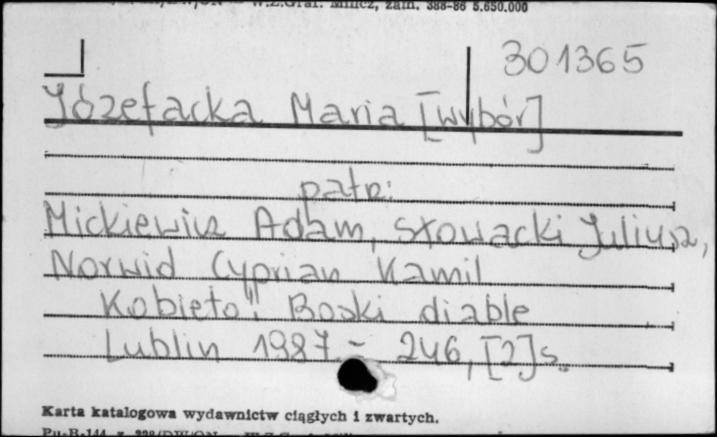 W.Z.Graf. Milicz, zam. 388-86 5.650.000
301365
Józefacka Maria [wybór]
patrz:
Mickiewicz Adam, Słowacki Juliusz,
Norwid Cyprian Kamil
Kobieto! Boski diable
Lublin 1987. - 246, [2] s.
Karta katalogowa wydawnictw ciągłych i zwartych.